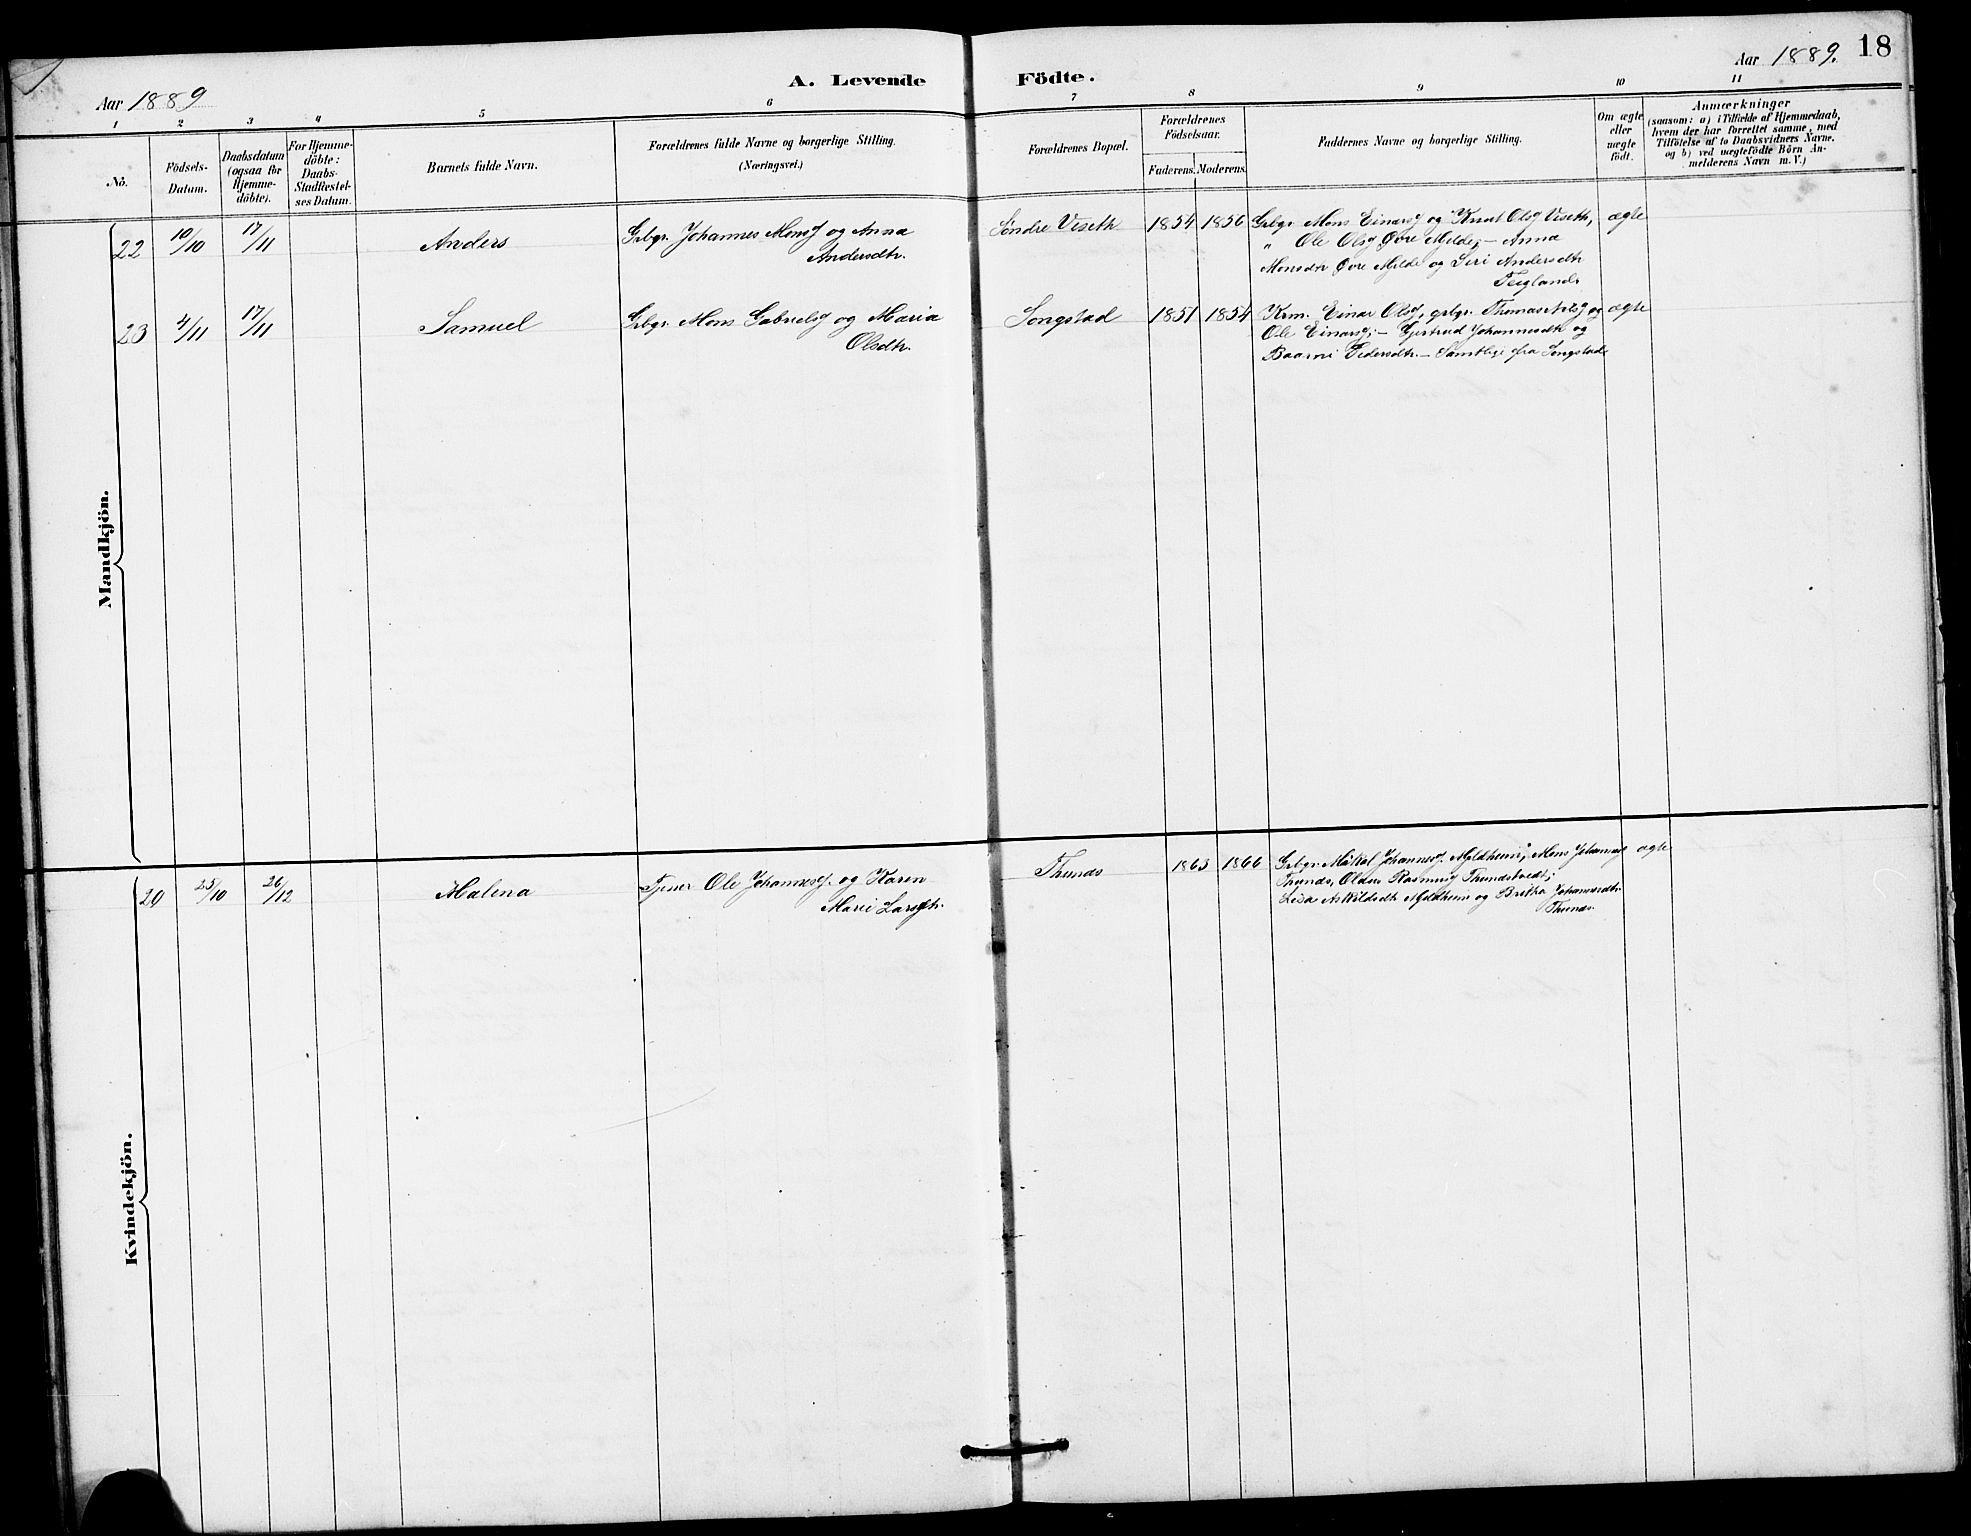 18
Aar 1889
A. Levende Födte.
Aar 1889.
1 2 3 4 5 6 7 8 9 10 11
No.
Födsels-
Datum.
Daabsdatum
(ogsaa for
Hjemme-
döbte).
For Hjemme-
döbte:
Daabs-
Stadfæstel-
ses Datum.
Barnets fulde Navn.
Forældrenes fulde Navne og borgerlige Stilling.
(Næringsvei.)
Forældrenes Bopæl.
Forældrenes
Födselsaar.
Faderens. Moderens.
Faddernes Navne og borgerlige Stilling.
Om ægte
eller
uægte
födt.
Anmærkninger
(saasom: a) i Tilfælde af Hjemmedaab,
hvem der har forrettet samme, med
Tilföielse af to Daabsvidners Navne.
og b) ved uægtefödte Börn An-
melderens Navn m. V.)
Mandkjön.
22 10/10 17/11 Anders Grbgr. Johannes Monsg og Anna
Andersdtr.
Söndre Viseth 1854 1856 Grbgr Mons Einarsg og Knut Olsg Viseth, ægte
" Ole Olsg Øvre Mjelde, – Anna
Monsdtr Øvre Mjelde og Siri Andersdtr
Teigland.
23 4/11 17/11 Samuel Grbgr. Mons Gabrielsg og Maria
Olsdtr.
Songstad 1851 1854 Krm. Einar Olsg, grbgr. Thomas Nilsg og ægte
Ole Einarsg; – Gjertrud Johannesdtr og
Pedersdtr. – Samtlige fra Songstad
Kvindekjön.
20 25/10 26/12 Malena Tjener Ole Johannesg. og Karen
Marie Larsdtr.
Thunæs 1863 1866 Grbgr Mikal Johannesg. Mjeldheim, Mons Johannesg ægte
Thunæs, Rasmusg Thunestvedt;
Lisa Askildsdtr Mjeldheim og Britha Johannesdtr.
Thunæs.